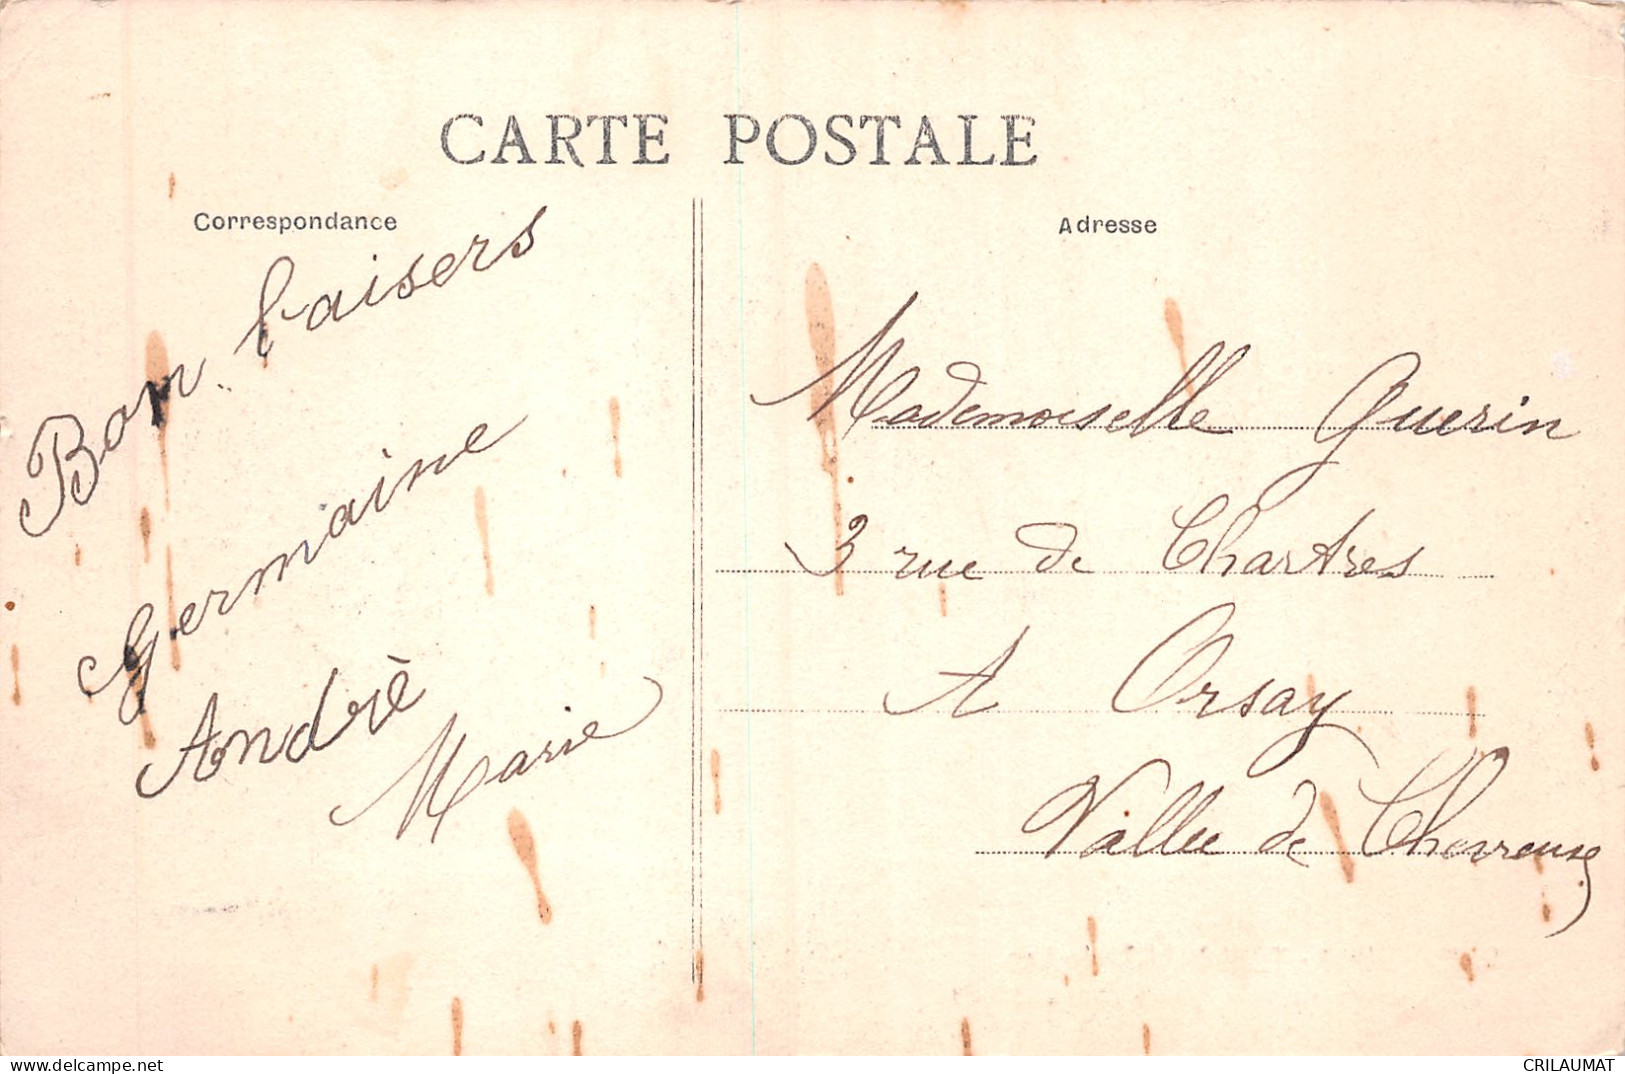 CARTE POSTALE
Correspondance
Bon baisers
Germaine
Andrè
Marie
Adresse
Mademoiselle Guerin
3 rue de Chartres
A Orsay
Vallee de Chevreuse
delcampe.net
CRILAUMAT